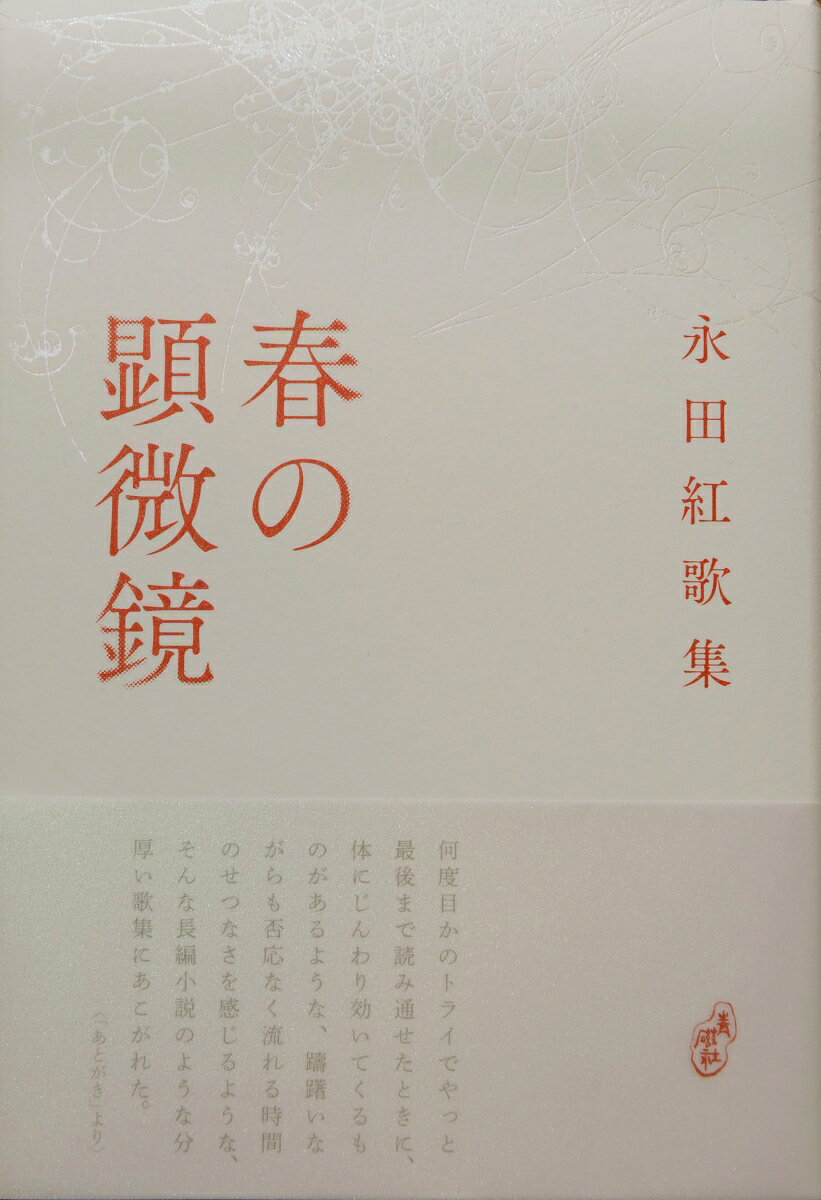 永田紅歌集
春の
顕微鏡
何度目かのトライでやっと
最後まで読み通せたときに、
体にじんわり効いてくるも
のがあるような、躊躇いな
がらも否応なく流れる時間
のせつなさを感じるような、
そんな長編小説のような分
厚い歌集にあこがれた。
〈「あとがき」より〉
青磁社